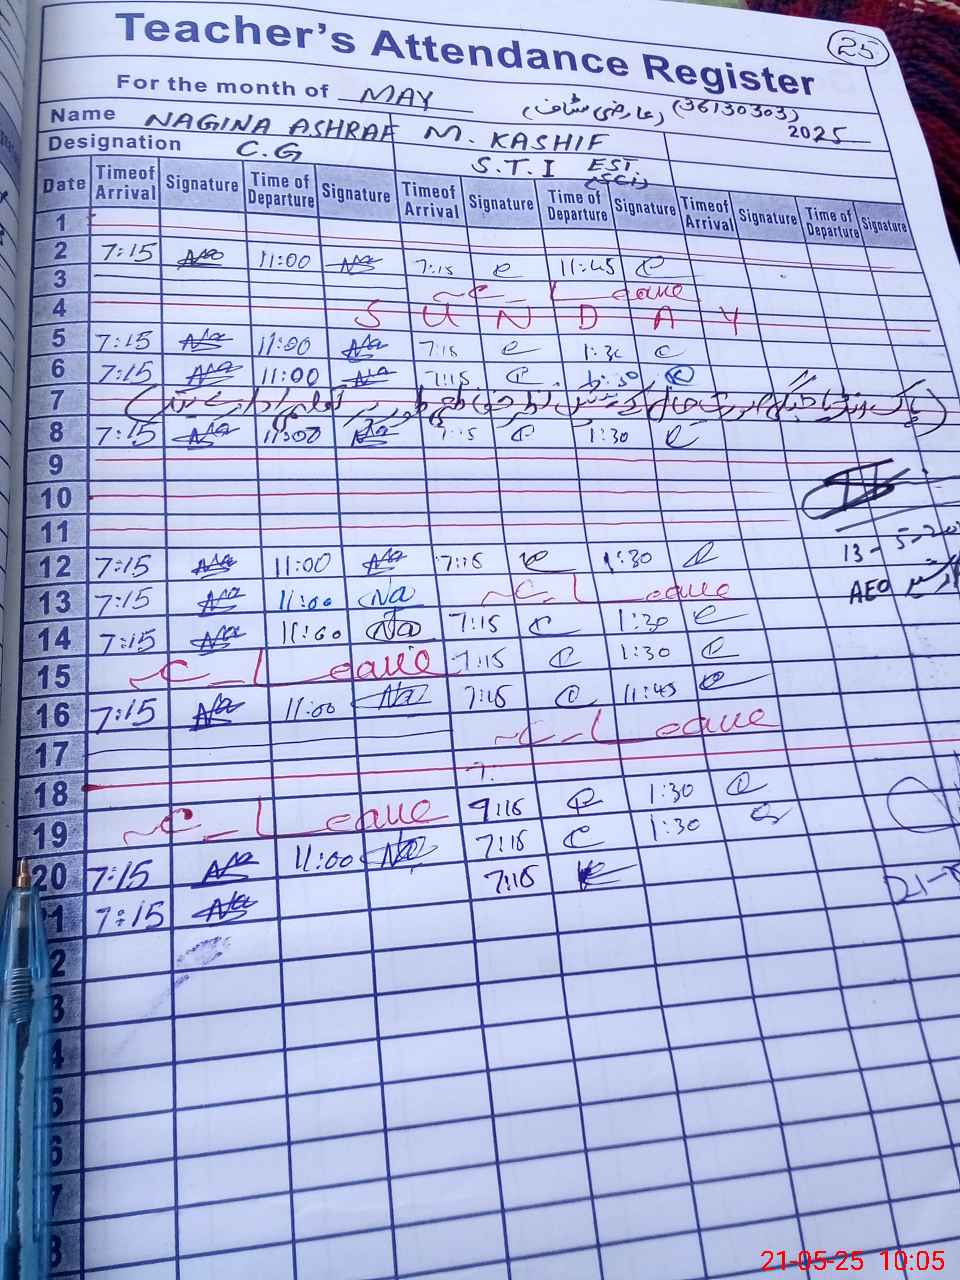 Teacher's Attendance Register
25
For the month of MAY
(عارضی سٹاف) (36130303)
2025
Name NAGINA ASHRAF M. KASHIF
Designation C.G S.T.I EST (SCi)
Date Timeof Arrival Signature Time of Departure Signature Timeof Arrival Signature Time of Departure Signature Timeof Arrival Signature Time of Departure Signature
1
2 7:15 Na 11:00 Na 7:15 e 11:45 e
3 C-Leave
4 S U N D A Y
5 7:15 Na 11:00 Na 7:15 e 1:30 e
6 7:15 Na 11:00 Na 7:15 e 1:30 e
7
8 7:15 Na 11:00 Na 7:15 e 1:30 e
9
10
11
12 7:15 Na 11:00 Na 7:15 e 1:30 e
13-5-20
13 7:15 Na 11:00 Na C-Leave
AEO
14 7:15 Na 11:00 Na 7:15 e 1:30 e
15 C-Leave 7:15 e 1:30 e
16 7:15 Na 11:00 Na 7:15 e 11:45 e
17 C-Leave
18 7:
19 C-Leave 7:15 e 1:30 e
20 7:15 Na 11:00 Na 7:15 e 1:30 e
21-
1 7:15 Na 7:15 e
2
3
4
5
6
7
8
21-05-25 10:05